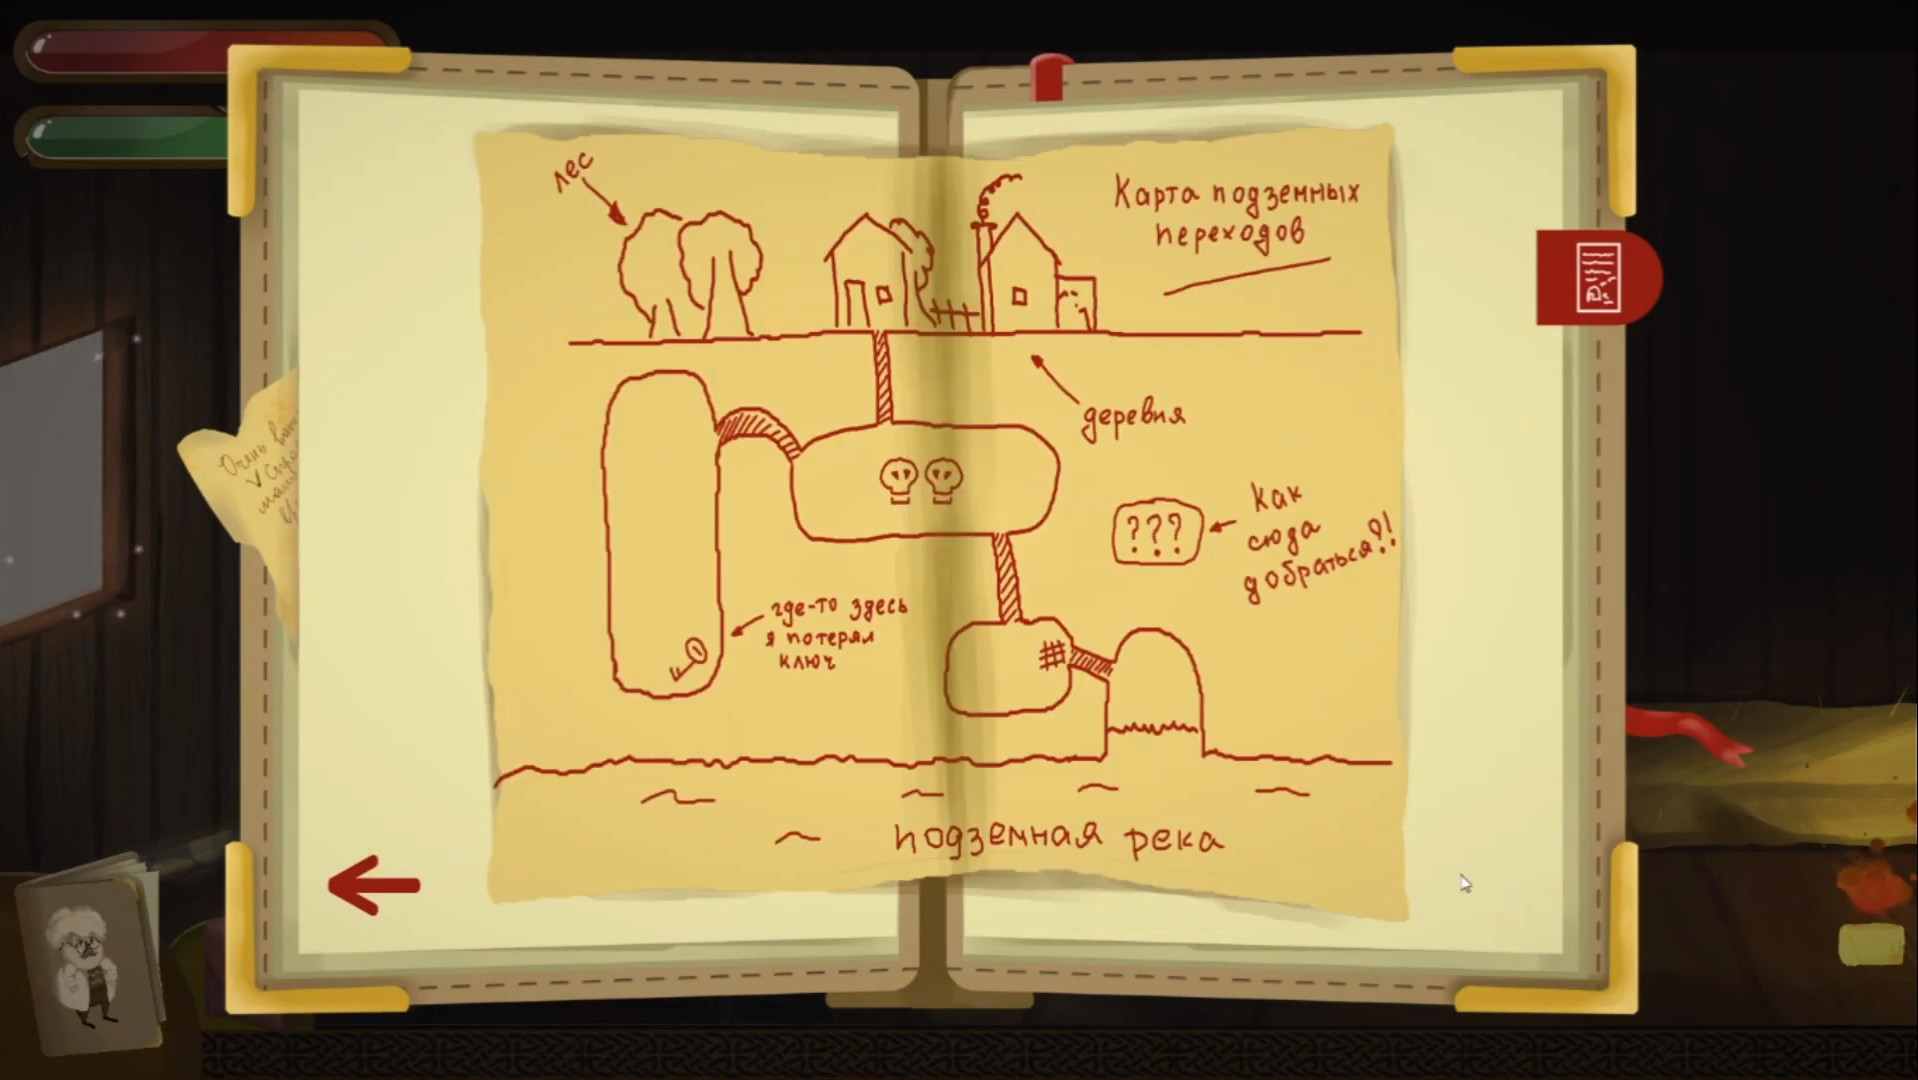 лес
Карта подземных
переходов
деревня
???
Как
сюда
добраться?!
где-то здесь
я потерял
ключ
подземная река
Очень